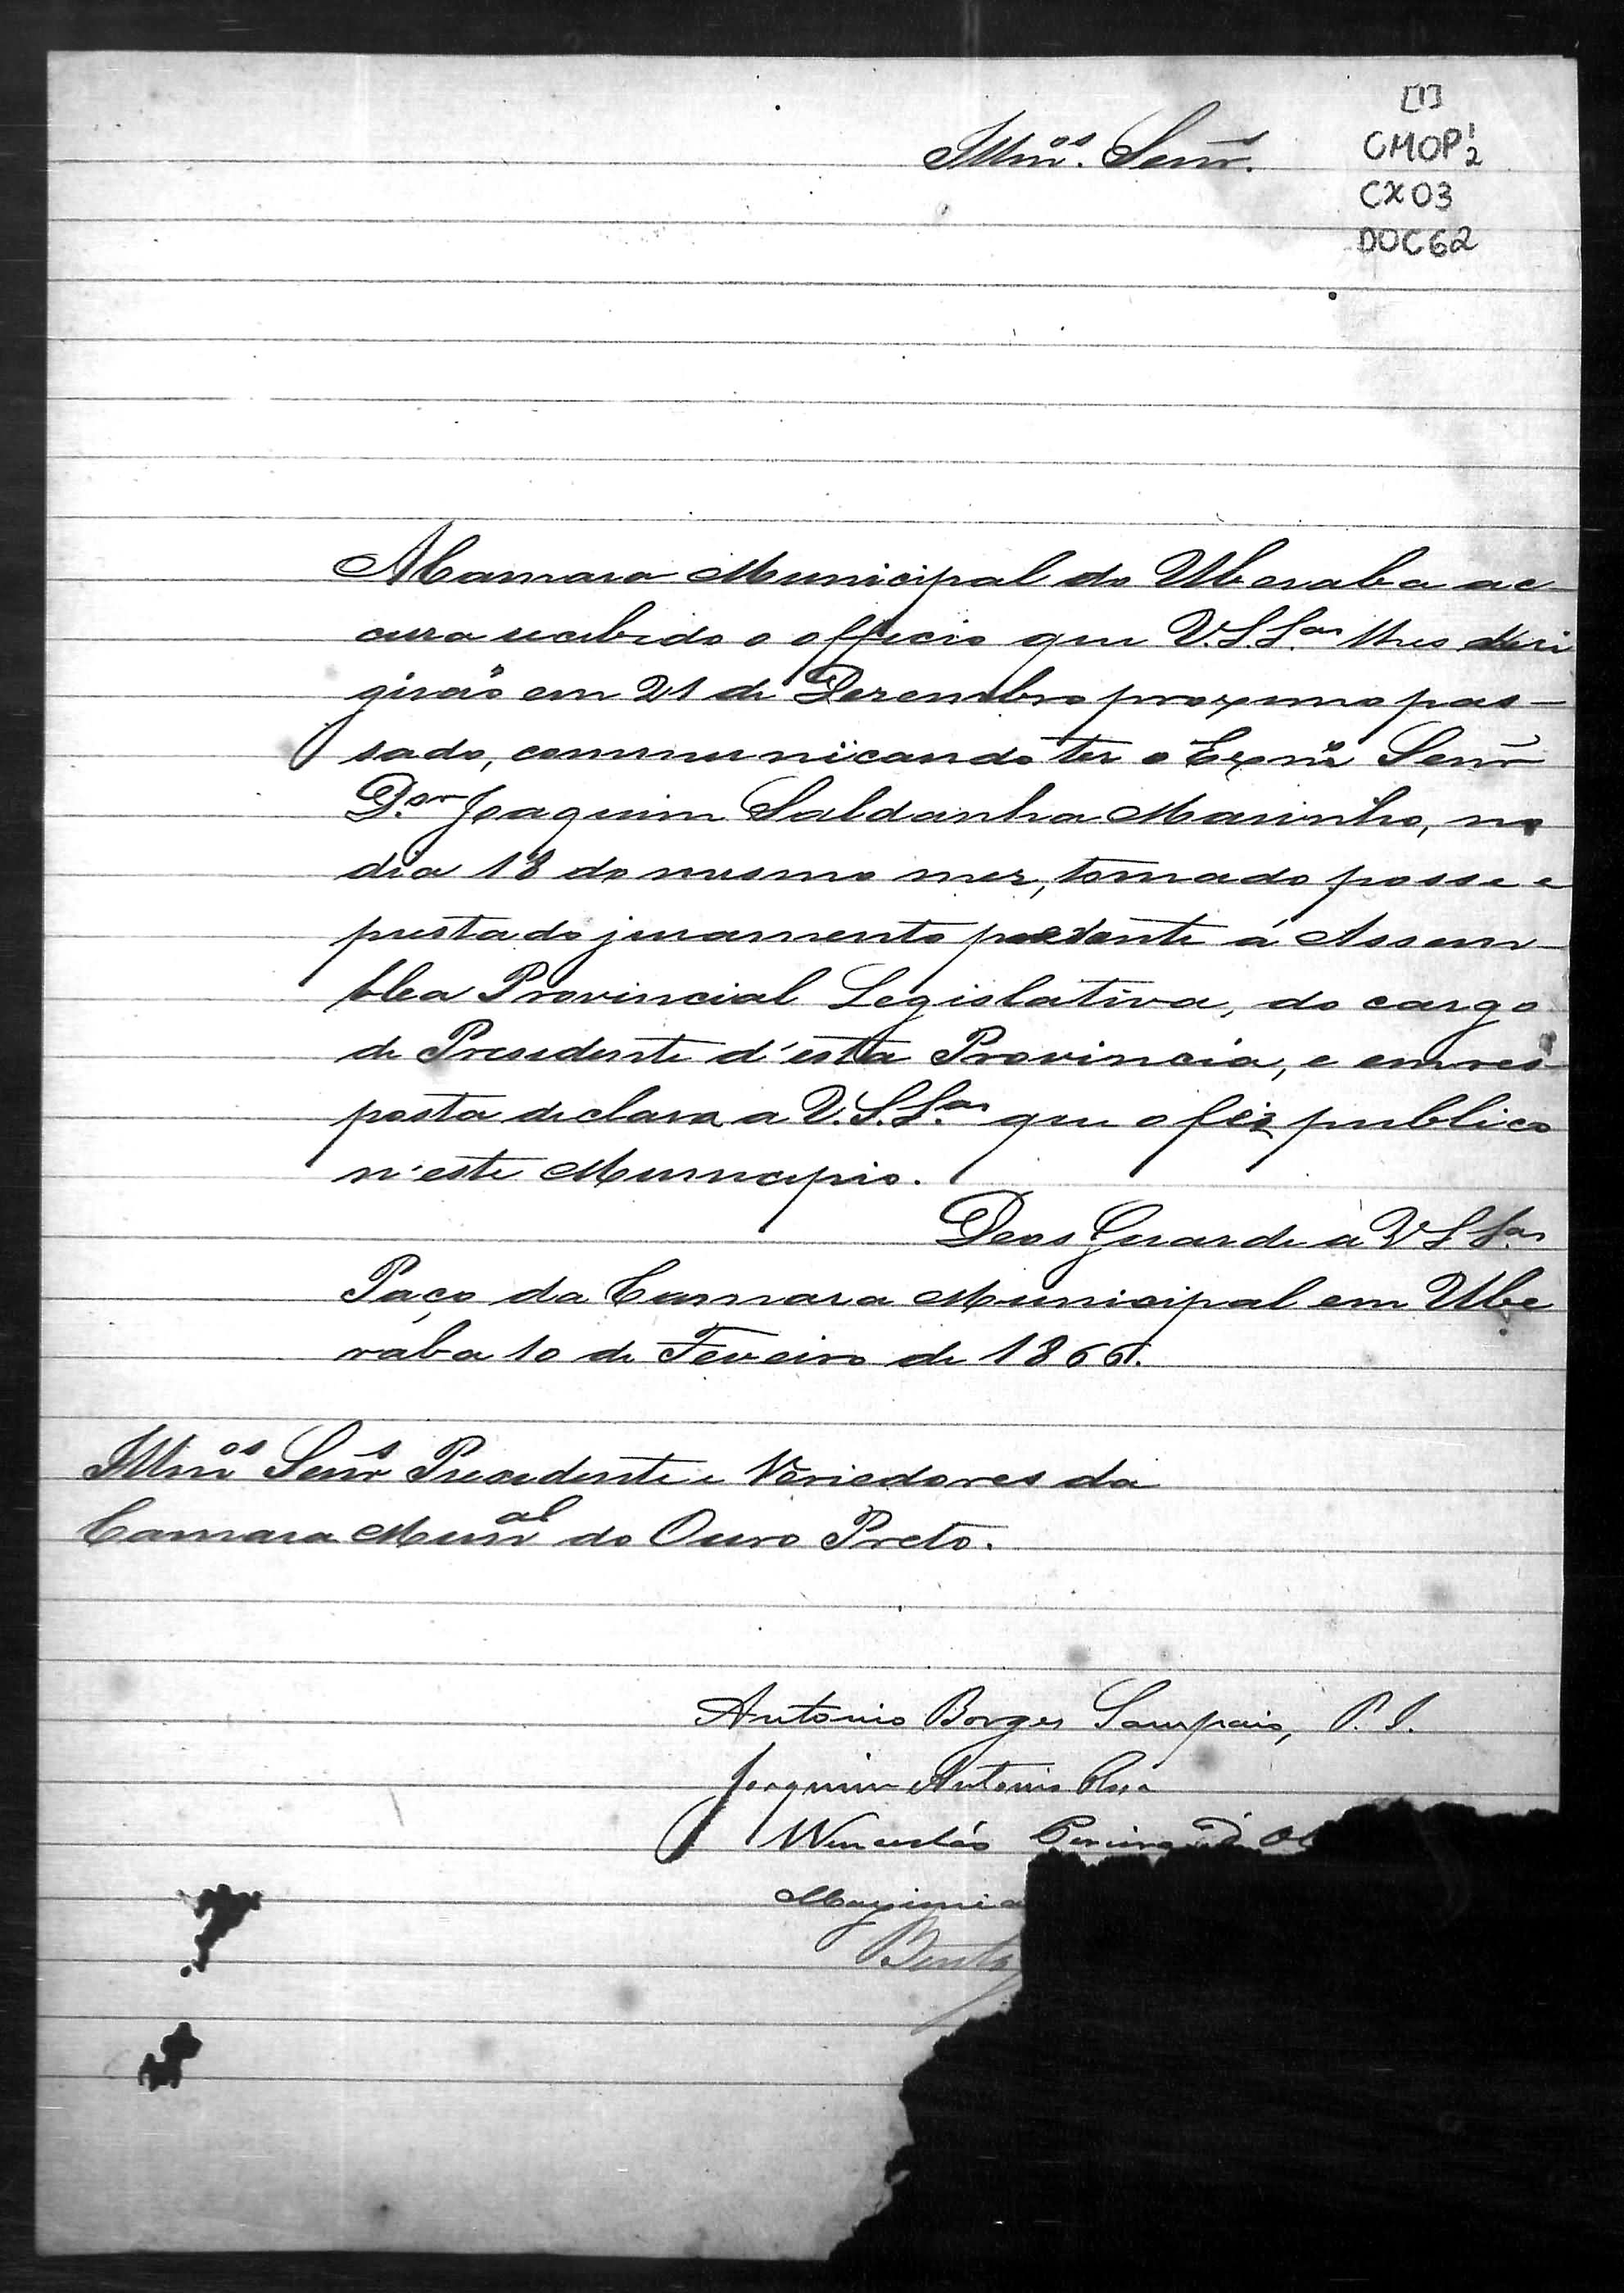 [1]
CMOP 1/2
CX03
DOC62
Illmos. Senrs.
A Camara Municipal do Uberaba ac-
cusa recebido o officio que V.S.Sas lhes diri
girão em 21 de Dezembro proximo pas-
sado, communicando ter o Exmo Senr
D.or Joaquim Saldanha Marinho, no
dia 18 do mesmo mez, tomado posse e
prestado juramento perante á Assem-
blea Provincial Legislativa, do cargo
de Presidente d'esta Provincia, e em res-
posta declara a V.S.Sas que o fez publico
n'este Municipio.
Deos Guarde a V S Sas
Paço da Camara Municipal em Ube
raba 10 de Feveiro de 1866.
Illmos Senrs Presidente e Veriedores da
Camara Munal do Ouro Preto.
Antonio Borges Sampaio, P. I.
Joaquim Antonio Rosa
Wencesláo Pereira de Ol
Maximia
Bento